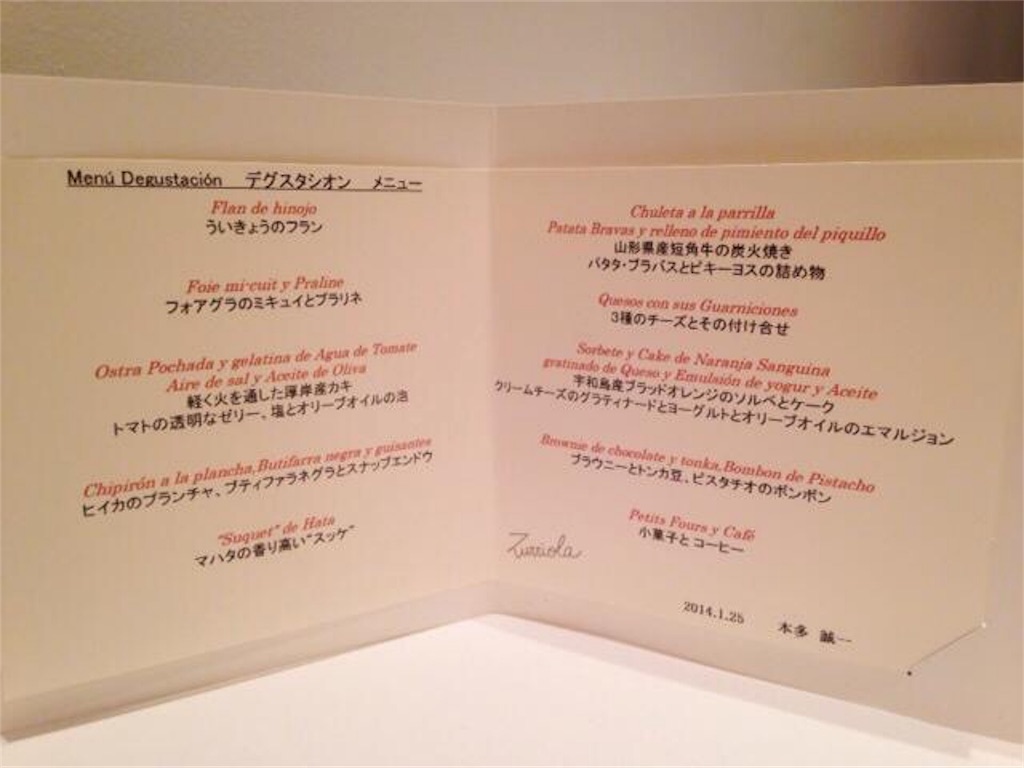 Menú Degustación デグスタシオン メニュー
Flan de hinojo
ういきょうのフラン
Foie mi-cuit y Praline
フォアグラのミキュイとプラリネ
Ostra Pochada y gelatina de Agua de Tomate
Aire de sal y Aceite de Oliva
軽く火を通した厚岸産カキ
トマトの透明なゼリー、塩とオリーブオイルの泡
Chipirón a la plancha,Butifarra negra y guisantes
ヒイカのプランチャ、ブティファラネグラとスナップエンドウ
"Suquet" de Hata
マハタの香り高い"スッケ"
Chuleta a la parrilla
Patata Bravas y relleno de pimiento del piquillo
山形県産短角牛の炭火焼き
パタタ・ブラバスとピキーヨスの詰め物
Quesos con sus Guarniciones
3種のチーズとその付け合せ
Sorbete y Cake de Naranja Sanguina
gratinado de Queso y Emulsión de yogur y Aceite
宇和島産ブラッドオレンジのソルベとケーク
クリームチーズのグラティナードとヨーグルトとオリーブオイルのエマルジョン
Brownie de chocolate y tonka,Bombon de Pistacho
ブラウニーとトンカ豆、ピスタチオのボンボン
Petits Fours y Café
小菓子とコーヒー
Zurriola
2014.1.25 本多 誠一